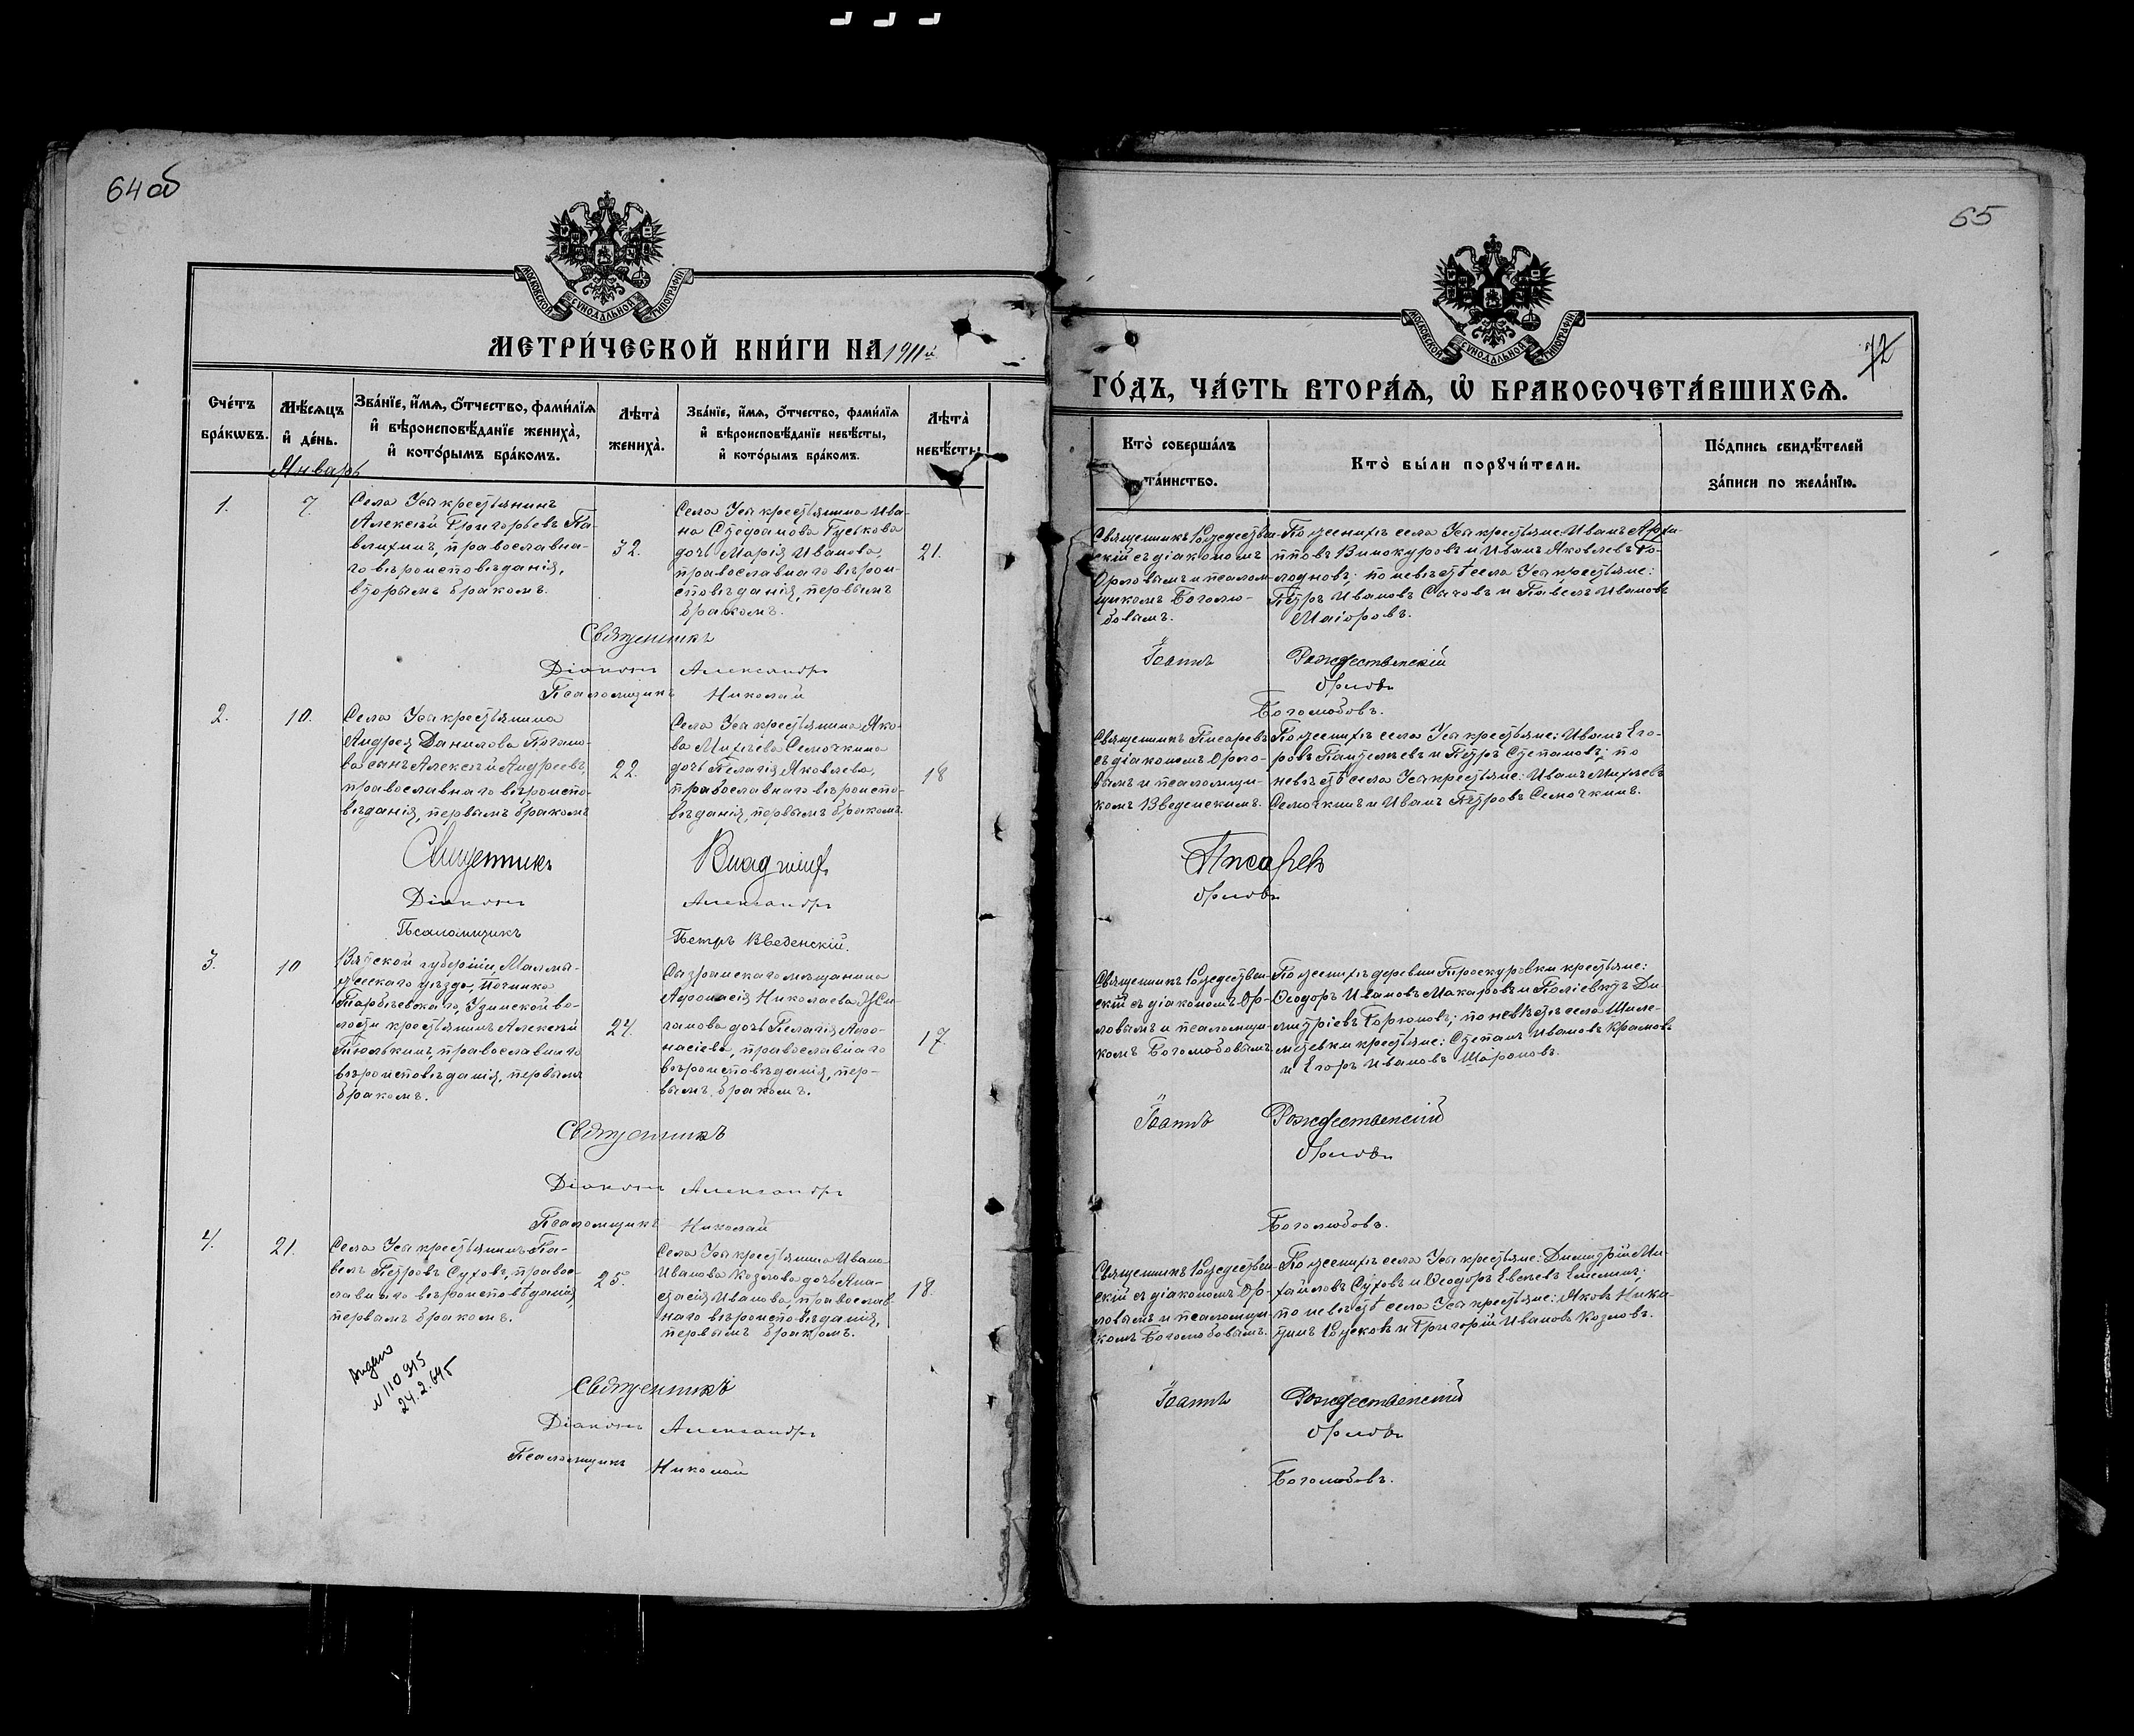 64 об
МОСКОВСКОЙ СѴНОДАЛЬНОЙ ТИПОГРАФІИ
МЕТРИ́ЧЕСКОЙ КНИ́ГИ НА 1911й
Сче́тъ бра́кѡвъ.
Мѣ́сѧцъ и҆ де́нь.
Зва́нїе, и҆́мѧ, ѻ҆́тчество, фами́лїѧ
и҆ вѣроисповѣ́данїе жениха̀,
и҆ кото́рымъ бра́комъ.
Лѣ́та̀ жениха̀.
Зва́нїе, и҆́мѧ, ѻ҆́тчество, фами́лїѧ
и҆ вѣроисповѣ́данїе невѣ́сты,
и҆ кото́рымъ бра́комъ.
Лѣ́та̀ невѣ́сты
Январь
1.
7
Села Усы крестьянинъ
Алексѣй Григорьевъ Па-
влихинъ, православна-
го вѣроисповѣданія,
вторымъ бракомъ.
32.
Села Усы крестьянина Ива-
на Стефанова Гуськова
дочь Марія Иванова,
православнаго вѣрои-
сповѣданія, первымъ
бракомъ.
21.
Священникъ
Діаконъ Александръ
Псаломщикъ Николай
2.
10.
Села Усы крестьянина
Андрея Данилова
сынъ Алексѣй Андреевъ,
православнаго вѣроиспо-
вѣданія, первымъ бракомъ
22.
Села Усы крестьянина Яко-
ва Михѣева Семочкина
дочь Пелагія Яковлева,
православнаго вѣроиспо-
вѣданія, первымъ бракомъ.
18
Священникъ Владимір
Діаконъ Александръ
Псаломщикъ Петръ Введенскій.
3.
10
Вятской губерніи, Малмы-
жскаго уѣзда, починка
волости крестьянинъ Алексѣй
Тюлькинъ, православнаго
вѣроисповѣданія, первымъ
бракомъ.
24.
Сызранскаго мѣщанина
Афонасія Николаева
дочь Пелагія Афо-
насіева, православнаго
вѣроисповѣданія, пер-
вымъ бракомъ.
17.
Священникъ
Діаконъ Александръ
Псаломщикъ Николай
4.
21.
Села Усы крестьянинъ Па-
велъ Петровъ Суховъ, право-
славнаго вѣроисповѣданія,
первымъ бракомъ.
25.
Села Усы крестьянина Ивана
Иванова Козлова дочь Ана-
стасія Иванова, православ-
наго вѣроисповѣданія,
первымъ бракомъ.
18.
N 110915
24.2.64г
Священникъ
Діаконъ Александръ
Псаломщикъ Николай
65
72
МОСКОВСКОЙ СѴНОДАЛЬНОЙ ТИПОГРАФІИ
ГО́ДЪ, ЧА́СТЬ ВТОРА́Ѧ, Ѽ БРАКОСОЧЕТА́ВШИХСѦ.
Кто̀ соверша́лъ
та́инство.
Кто̀ бы́ли порꙋчи́тели.
По́дпись свидѣ́телей
за́писи по жела́нїю.
Священникъ Рождествен-
скій съ діакономъ
Орловымъ и псалом-
щикомъ Боголю-
бовымъ.
По женихѣ села Усы крестьяне: Иванъ Архи-
повъ Винокуровъ и Иванъ Яковлевъ Го-
лодновъ; по невѣстѣ села Усы крестьяне:
Петръ Ивановъ Сычовъ и Павелъ Ивановъ
Маіоровъ.
Іоаннъ Рождественскій
Орловъ
Боголюбовъ.
Священникъ Писаревъ
съ діакономъ Орло-
вымъ и псаломщи-
комъ Введенскимъ.
По женихѣ села Усы крестьяне: Иванъ Его-
ровъ Пантелѣевъ и Петръ Степановъ; по
невѣстѣ села Усы крестьяне: Иванъ Михѣевъ
Семочкинъ и Иванъ Петровъ Семочкинъ.
Писаревъ
Орловъ
Священникъ Рождествен-
скій съ діакономъ Ор-
ловымъ и псаломщи-
комъ Боголюбовымъ.
По женихѣ деревни Проскуровки крестьяне:
Ѳеодоръ Ивановъ Макаровъ и Поліевктъ Ди-
митріевъ Горюновъ; по невѣстѣ села Шиле-
мѣтевки крестьяне: Степанъ Ивановъ Храмовъ
и Егоръ Ивановъ Шароновъ.
Іоаннъ Рождественскій
Орловъ
Боголюбовъ.
Священникъ Рождествен-
скій съ діакономъ Ор-
ловымъ и псаломщи-
комъ Боголюбовымъ.
По женихѣ села Усы крестьяне: Димитрій Ми-
хайловъ Суховъ и Ѳеодоръ Евсѣевъ Емелинъ;
по невѣстѣ села Усы крестьяне: Яковъ Ники-
тинъ и Григорій Ивановъ Козловъ.
Іоаннъ Рождественскій
Орловъ
Боголюбовъ.